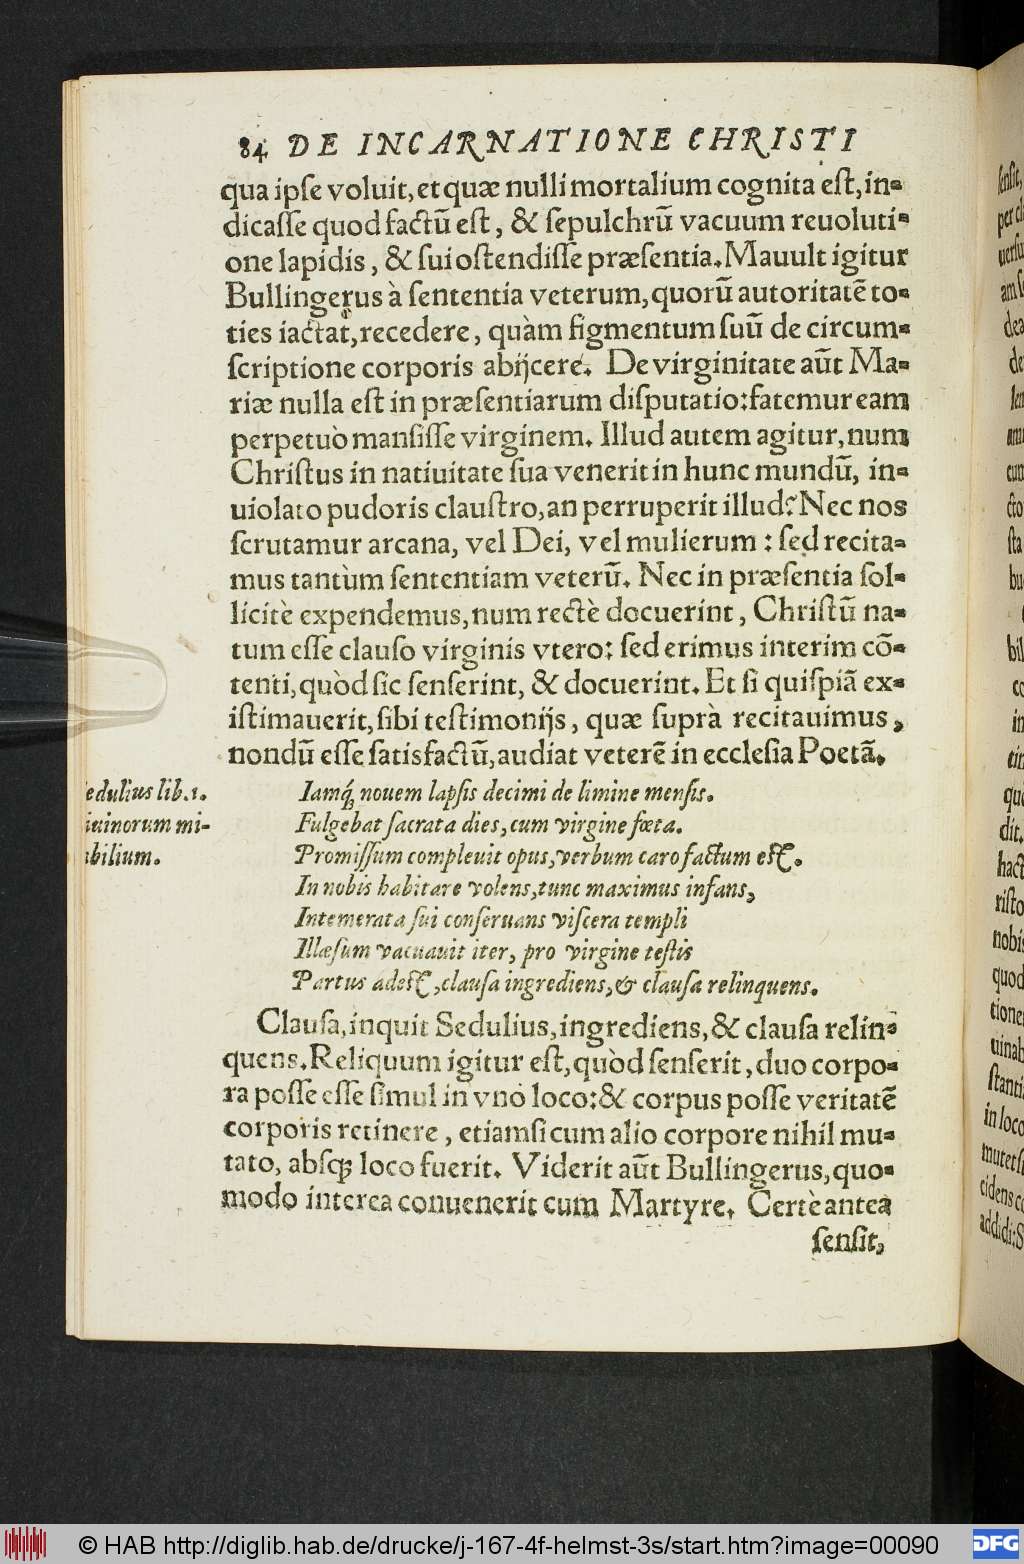 84 DE INCARNATIONE CHRISTI
qua ipſe voluit, et quæ nulli mortalium cognita eſt, in-
dicaſſe quod factũ eſt, & ſepulchrũ vacuum reuoluti-
one lapidis, & ſui oſtendiſſe præſentia. Mauult igitur
Bullingerus à ſententia veterum, quorũ autoritatẽ to-
ties iactat, recedere, quàm figmentum ſuũ de circum-
ſcriptione corporis abijcere. De virginitate aũt Ma-
riæ nulla eſt in præſentiarum diſputatio: fatemur eam
perpetuò manſiſſe virginem. Illud autem agitur, num
Chriſtus in natiuitate ſua venerit in hunc mundũ, in-
uiolato pudoris clauſtro, an perruperit illud? Nec nos
ſcrutamur arcana, vel Dei, vel mulierum: ſed recita-
mus tantùm ſententiam veterũ. Nec in præſentia ſol-
licitè expendemus, num rectè docuerint, Chriſtũ na-
tum eſſe clauſo virginis vtero: ſed erimus interim cõ-
tenti, quòd ſic ſenſerint, & docuerint. Et ſi quiſpiã ex-
iſtimauerit, ſibi teſtimonijs, quæ ſuprà recitauimus,
nondũ eſſe ſatisfactũ, audiat veterẽ in eccleſia Poetã.
edulius lib. 1.
iuinorum mi-
abilium.
Iamq́; nouem lapſis decimi de limine menſis.
Fulgebat ſacrata dies, cum virgine fœta.
Promiſſum compleuit opus, verbum caro factum eſt.
In nobis habitare volens, tunc maximus infans,
Intemerata ſui conſeruans viſcera templi
Illæſum vacuauit iter, pro virgine teſtis
Partus adeſt, clauſa ingrediens, & clauſa relinquens.
Clauſa, inquit Sedulius, ingrediens, & clauſa relin-
quens. Reliquum igitur eſt, quòd ſenſerit, duo corpo-
ra poſſe eſſe ſimul in vno loco: & corpus poſſe veritatẽ
corporis retinere, etiamſi cum alio corpore nihil mu-
tato, abſq; loco fuerit. Viderit aũt Bullingerus, quo-
modo interea conuenerit cum Martyre. Certè antea
ſenſit,
© HAB http://diglib.hab.de/drucke/j-167-4f-helmst-3s/start.htm?image=00090
DFG